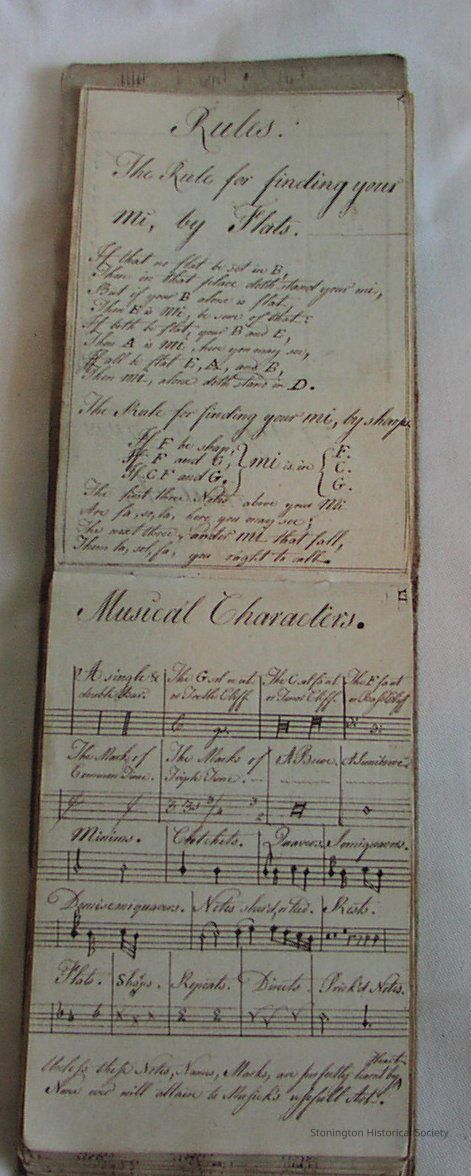 Rules.
The Rule for finding your
mi, by Flats.
If that no flat be set in B,
Then in that place doth stand your mi,
But if your B alone is flat,
Then E is Mi, be sure of that:
If both be flat, your B and E,
Then A is mi here you may see,
If all be flat E, A, and B,
Then mi, alone doth stand in D.
The Rule for finding your mi, by sharps
If F be sharp,
If F and C,
If C F and G,
mi is in
F.
C.
G.
The first three Notes above your Mi
Are fa, so, la, here you may see;
The next three, under mi that fall,
Them la, sol, fa, you ought to call.
Musical Characters.
A single &
double Bar.
The G sol re ut
or Treble Cliff.
The C sol fa ut
or Tenor Cliff.
The F faut
or Bass Cliff
The Mark of
Common Time.
The Marks of
Triple Time.
A Breve.
A Semibreve.
Minims.
Crotchets.
Quavers.
Semiquavers.
Demisemiquavers.
Notes slur'd, or tied.
Rests.
Flats.
Sharps.
Repeats.
Directs
Prick'd Notes.
Unless these Notes, Names, Marks, are perfectly learnt by Heart
None ever will attaine to Musick's usefull Art.
Stonington Historical Society